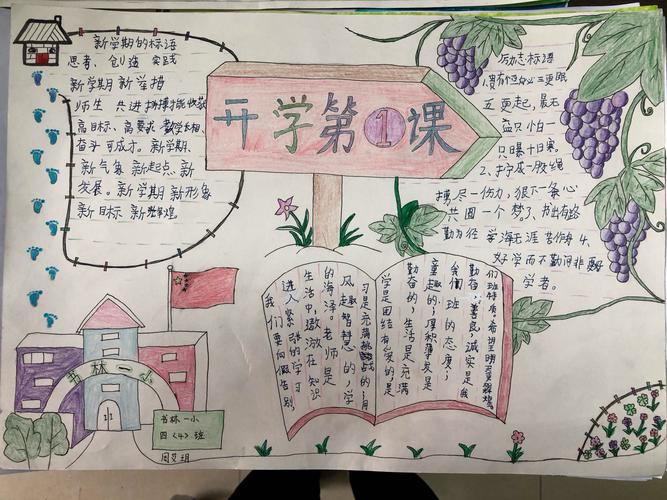 新学期的标语
思考、创造 实践
新学期 新举措
师生 共进
高目标、高要求
奋斗 可成才。新学期、
新气象 新起点 新
发展。新学期 新形象
新目标 新辉煌
开学第1课
励志标语
三更眠
五更起,最无
益只怕一
只曝十日寒。
2、拧成一股绳
搏尽一份力,狠下一条心
共圆一个梦。3、书山有路
勤为径 学海无涯 苦作舟 4、
好学而不勤问非真
学者。
我们要向假告别
进入紧张的学习
生活中,遨游在知识
的海洋。老师是
风趣智慧的,学
习是充满挑战的,同
学是团结有爱的是
勤奋的,生活是充满
童趣的,厚积薄发是
我们班的态度,
勤奋、善良,诚实是我
们班特质,希望明更辉煌
书林一小
书林一小
四〈4〉班